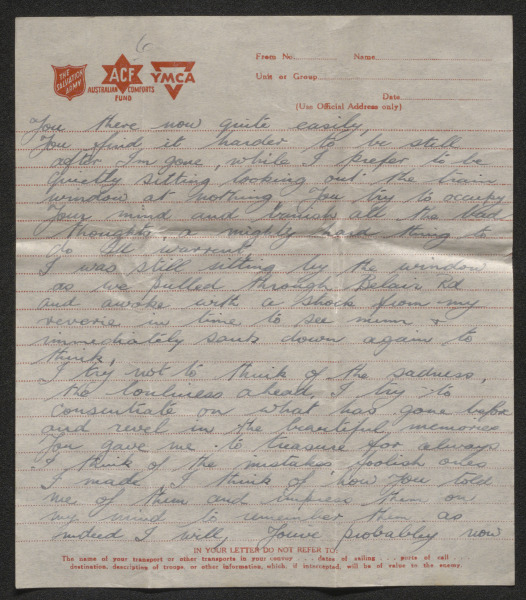 6
THE SALVATION ARMY
ACF
AUSTRALIAN COMFORTS FUND
YMCA
From No. Name
Unit or Group
Date
(Use Official Address only)
You there now quite easily,
You find it harder to be still
after I'm gone, while I prefer to be
quietly sitting looking out the train
window at nothing, You try to occupy
your mind and banish all the bad
thoughts, a mighty hard thing to
do I'll warrent.
I was still sitting by the window
as we pulled through Belair Rd
and awoke with a shock from my
reverie in time to see mum &
immediately sank down again to
think.
I try not to think of the sadness,
the lonliness ahead, I try to
consentrate on what has gone before
and revel in the beautiful memories
You gave me to treasure for always
I think of the mistakes foolish ones
I made, I think of how you told
me of them and impress them on
my mind to remember them as
indeed I will, You've probabley now
IN YOUR LETTER DO NOT REFER TO:
The name of your transport or other transports in your convoy . . . dates of sailing . . . ports of call . . .
destination, description of troops, or other information, which, if intercepted, will be of value to the enemy.